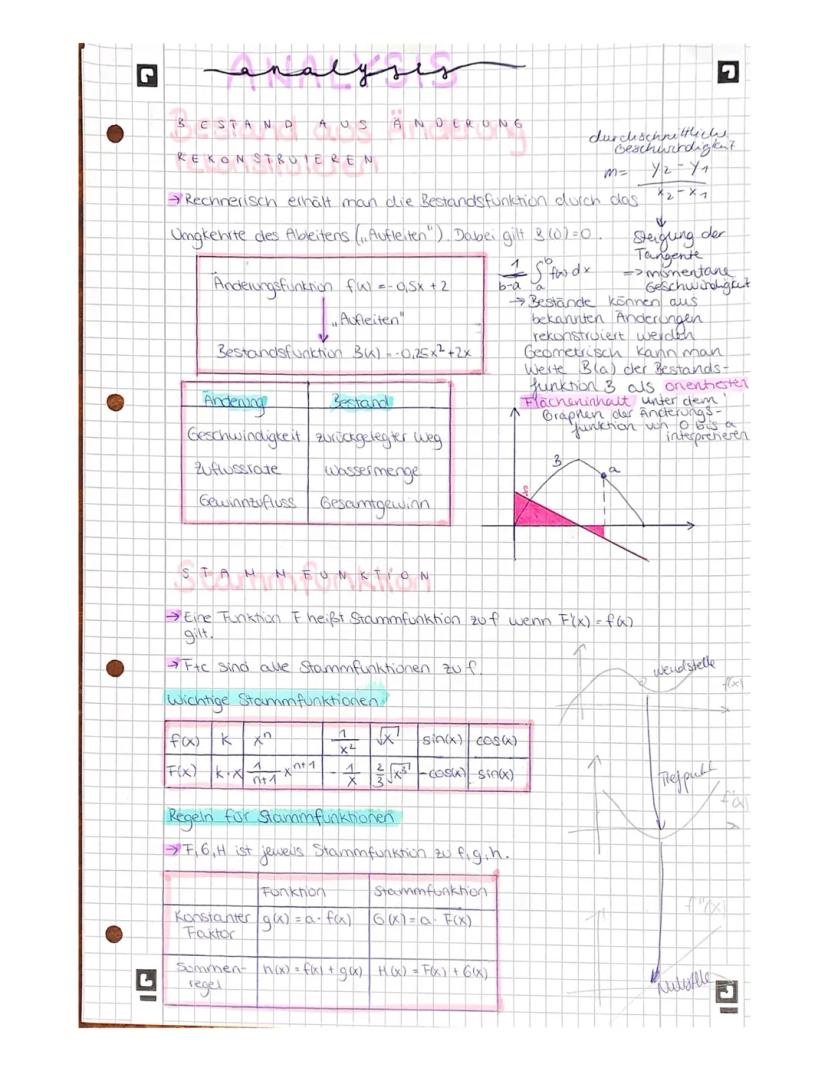 analysis
BESTAND AUS ÄNDERUNG
REKONSTRUIEREN
durchschnittliche
Geschwindigkeit
m= y2-y1 / x2-x1
→ Rechnerisch erhält man die Bestandsfunktion durch das
Umgkehrte des Ableitens („Aufleiten"). Dabei gilt B(0)=0.
Steigung der
Tangente
=> momentane
Geschwindigkeit
1/b-a ∫ₐᵇ f(x) dx
→ Bestände können aus
bekannten Änderungen
rekonstruiert werden
Geometrisch kann man
Werte B(a) der Bestands-
funktion B als orientierten
Flächeninhalt unter dem
Graphen der Änderungs-
funktion von 0 bis a
interpretieren
Änderungsfunktion f(x) = -0,5x + 2
„Aufleiten"
Bestandsfunktion B(x) = -0,25x² + 2x
Änderung Bestand
Geschwindigkeit zurückgelegter Weg
Zuflussrate Wassermenge
Gewinnzufluss Gesamtgewinn
B
a
f
STAMMFUNKTION
→ Eine Funktion F heißt Stammfunktion zu f wenn F'(x) = f(x)
gilt.
→ F+c sind alle Stammfunktionen zu f.
Wichtige Stammfunktionen
f(x) k xⁿ 1/x² √x sin(x) cos(x)
F(x) k·x 1/n+1 xⁿ⁺¹ -1/x 2/3 √x³ -cos(x) sin(x)
Wendstelle
f(x)
Tiefpunkt
f'(x)
f''(x)
Nullstelle
Regeln für Stammfunktionen
→ F, G, H ist jeweils Stammfunktion zu f, g, h.
Funktion Stammfunktion
Konstanter g(x) = a · f(x) G(x) = a · F(x)
Faktor
Summen- h(x) = f(x) + g(x) H(x) = F(x) + G(x)
regel